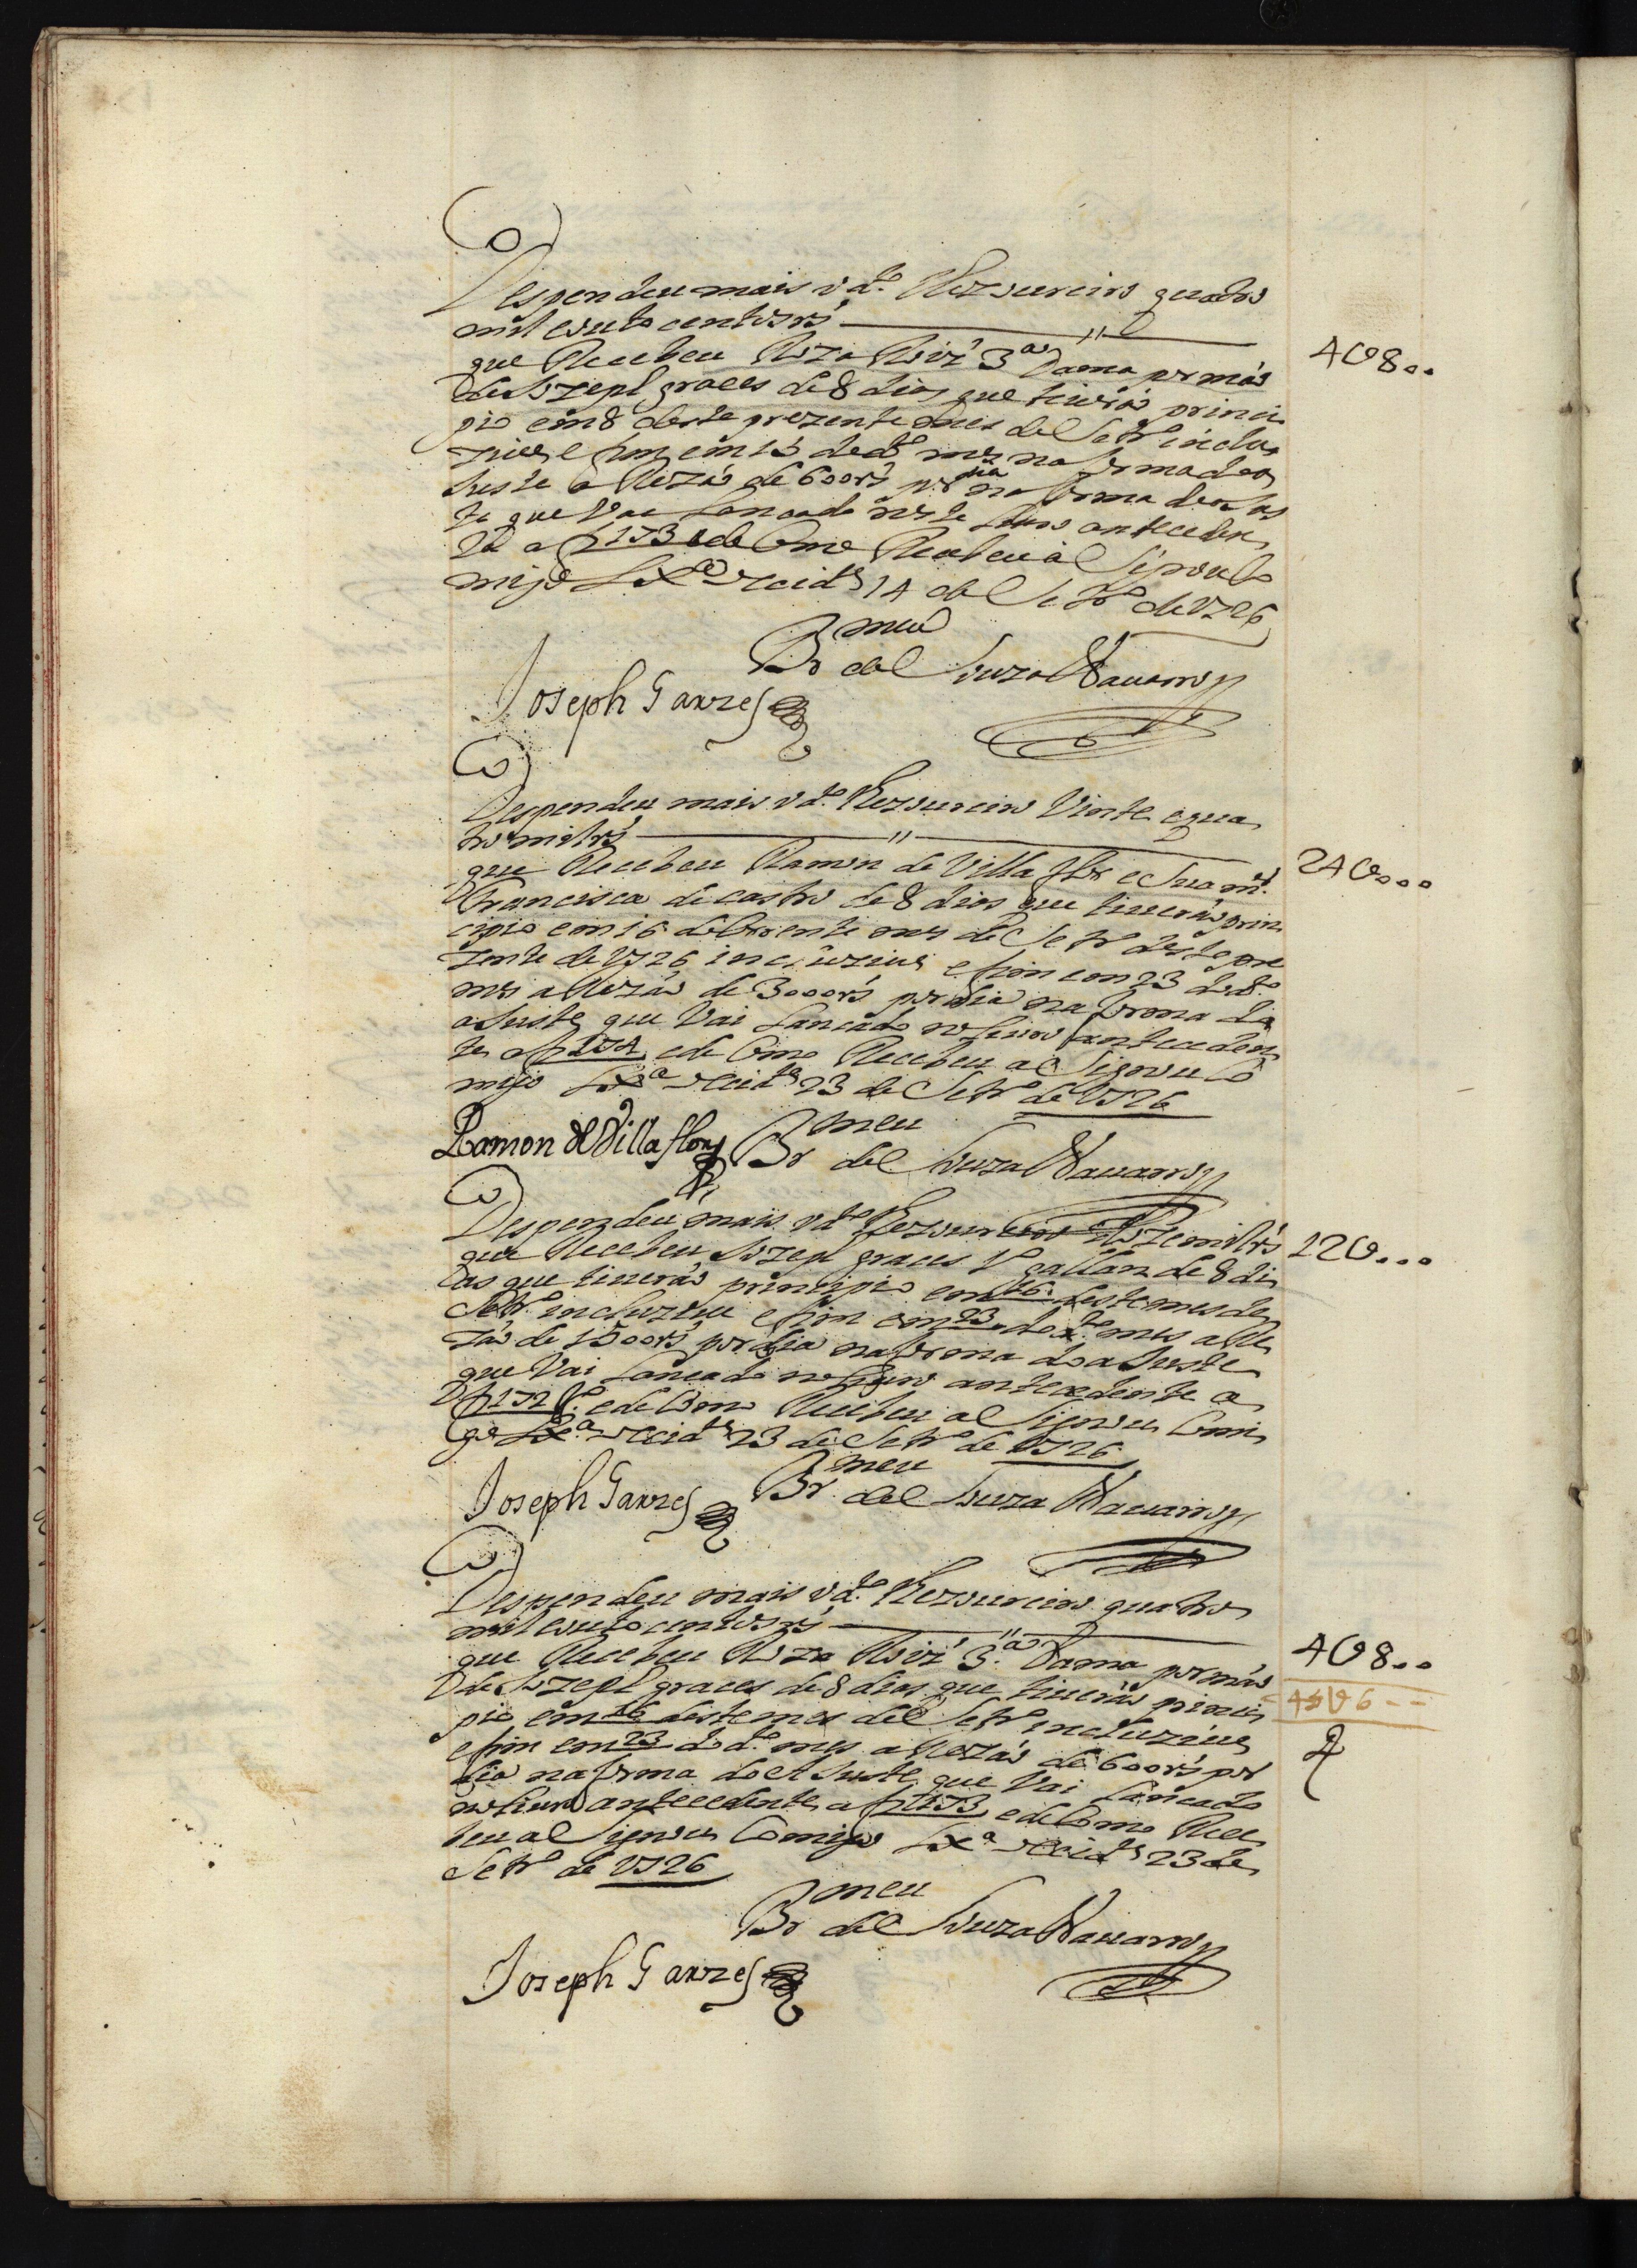 Despendeu mais o d.º Thezoureiro quatro
mil e outo centos rs ——— " ———
4U8..
que Recebeu Roza Rivr.ª 3.ª Dama por mão
de Jozeph graces de 8 dias que tiverão princi
pio em 8 deste prezente mes de Setr.º incluz
zive e fim em 15 do d.º mez na forma do a
Juste a Rezão de 600 rs por dia na forma do ajus
te que vai Lancado neste Livro anteceden
te a f 173 e de Como Recebeu aSignou Co
migo Lx.ª occid.al 14 de Setr.º de 1726
Bmeu de Souza Navarro
Joseph Garzes
Despendeu mais o d.º Thezoureiro Vinte e qua
tro mil rs ——— " ———
24U...
que Recebeu Ramon de Villa flor e Sua m.er
Francisca de castro de 8 dias que tiverão prin
cipio em 16 do Corrente mes de Setr.º deste pre
zente de 1726 incluzive e fim em 23 do d.º
mes a Rezão de 3000 rs por dia na forma do
aJuste que Vai Lancado no livro anteceden
te a f 174 e de Como Recebeu aSignou Co
migo Lx.ª occid.al 23 de Setr.º de 1726
Bmeu de Souza Navarro
Ramon de Villaflor
Despendeu mais o d.º Thezoureiro doze mil rs
12U...
que Recebeu Jozeph graces 1.º gallan de 8 di
as que tiverão principio em 16 deste mes de
Setr.º incluzive e fim em 23 do d.º mes a Re
zão de 1500 rs por dia na forma do aJuste
que Vai Lancado no livro antecedente a
f 172 v.º e de Como Recebeu aSignou Comi
go Lx.ª occid.al 23 de Setr.º de 1726
Bmeu de Souza Navarro
Joseph Garzes
Despendeu mais o d.º Thezoureiro quatro
mil e outo centos rs ——— " ———
4U8..
que Recebeu Roza Rivr.ª 3.ª Dama por mão
de Jozeph graces de 8 dias que tiverão princi
45U6--
pio em 16 deste mes de Setr.º incluzive
e fim em 23 do d.º mes a Rezão de 600 rs por
dia na forma do AJuste que Vai Lancado
no livro antecedente a f 173 e de Como Rece
beu aSignou Comigo Lx.ª occid.al 23 de
Setr.º de 1726
Bmeu de Souza Navarro
Joseph Garzes